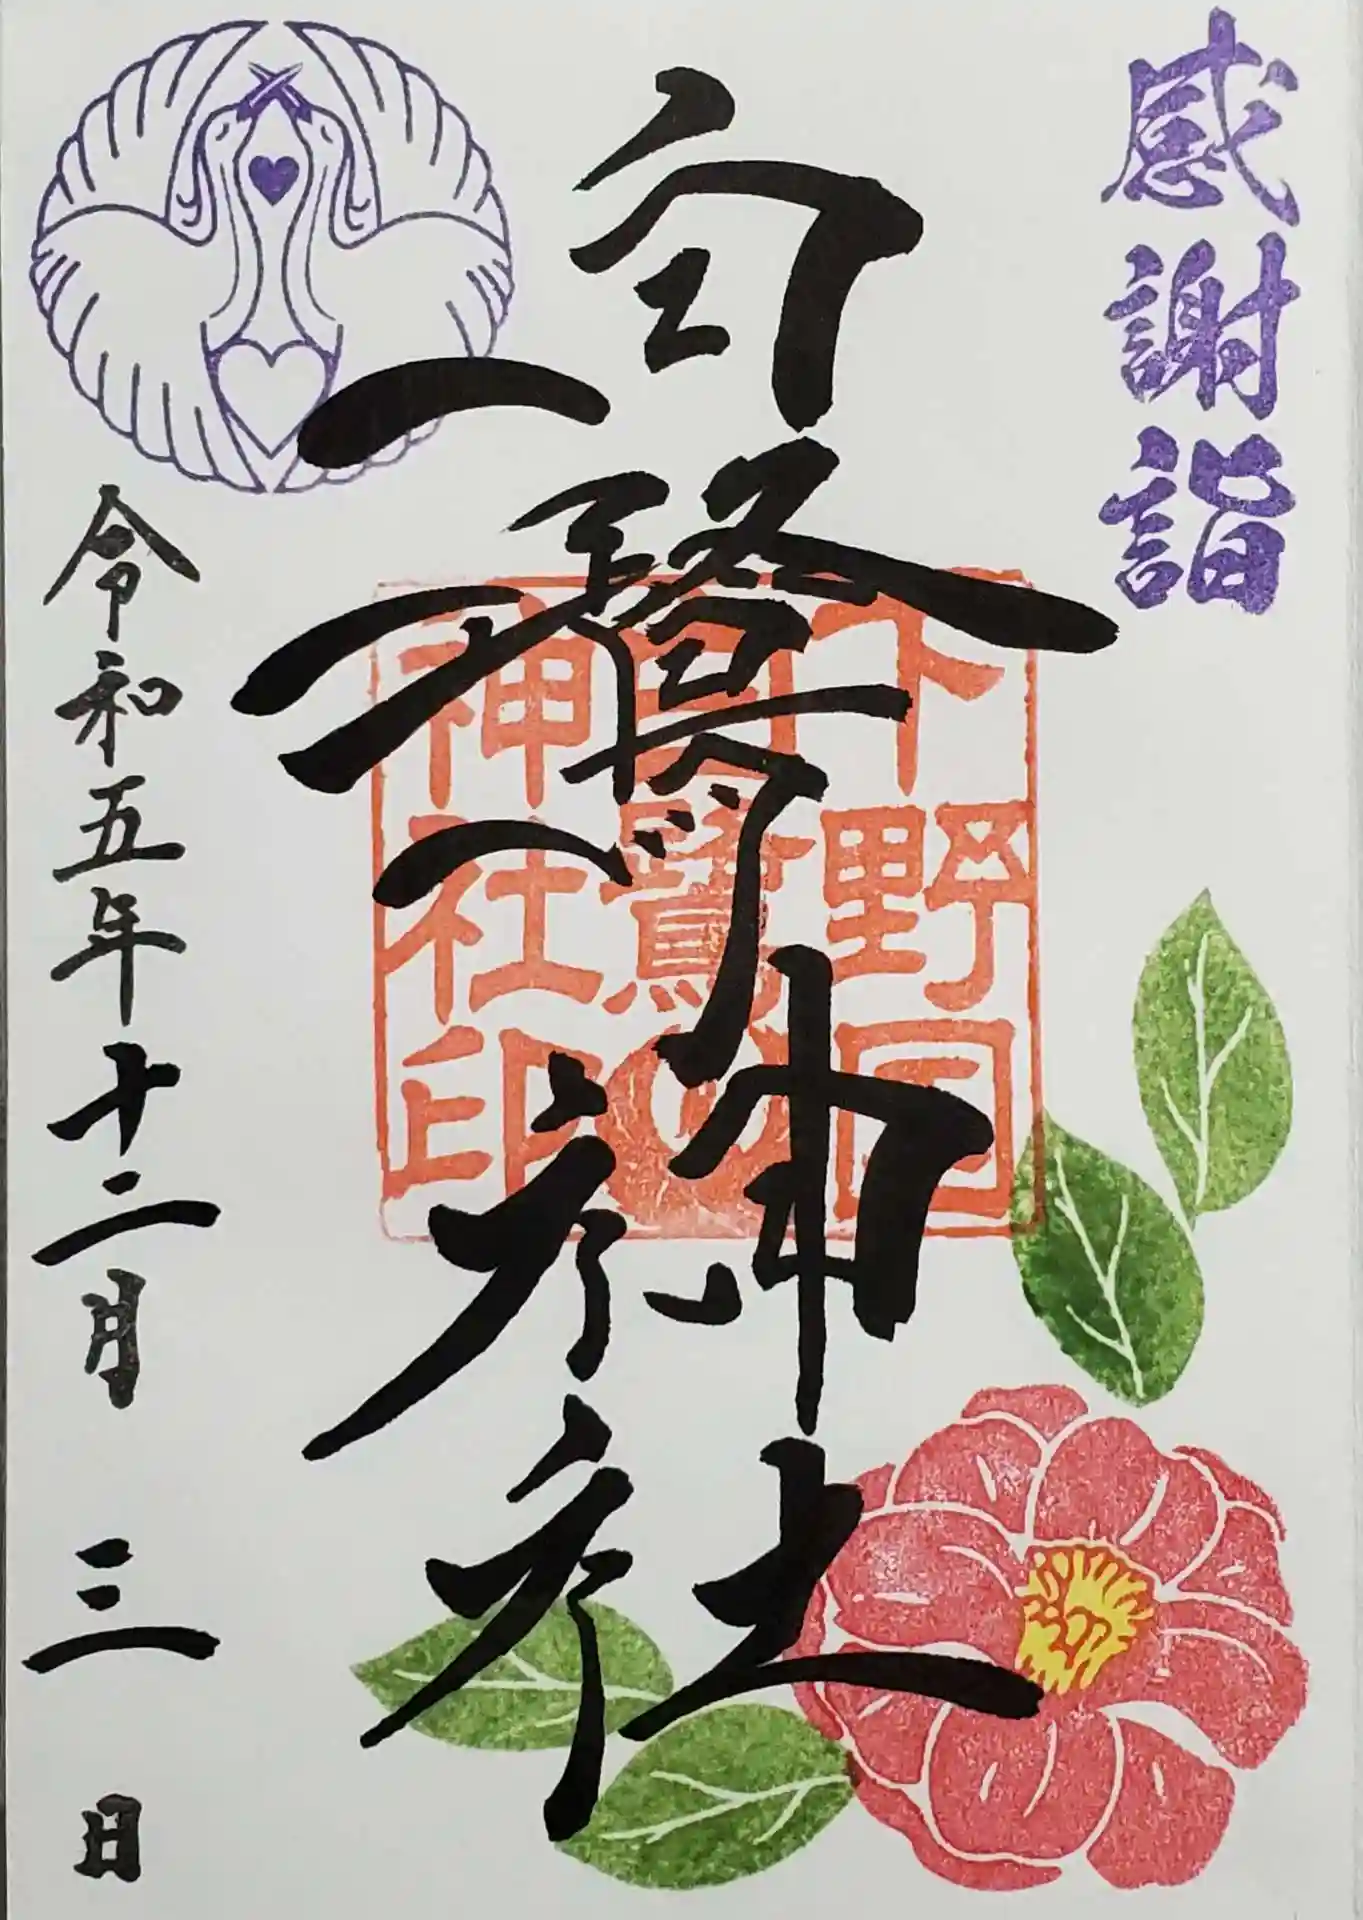 感謝詣
白鷺神社
下野国
白鷺の
神社印
令和五年十二月三日